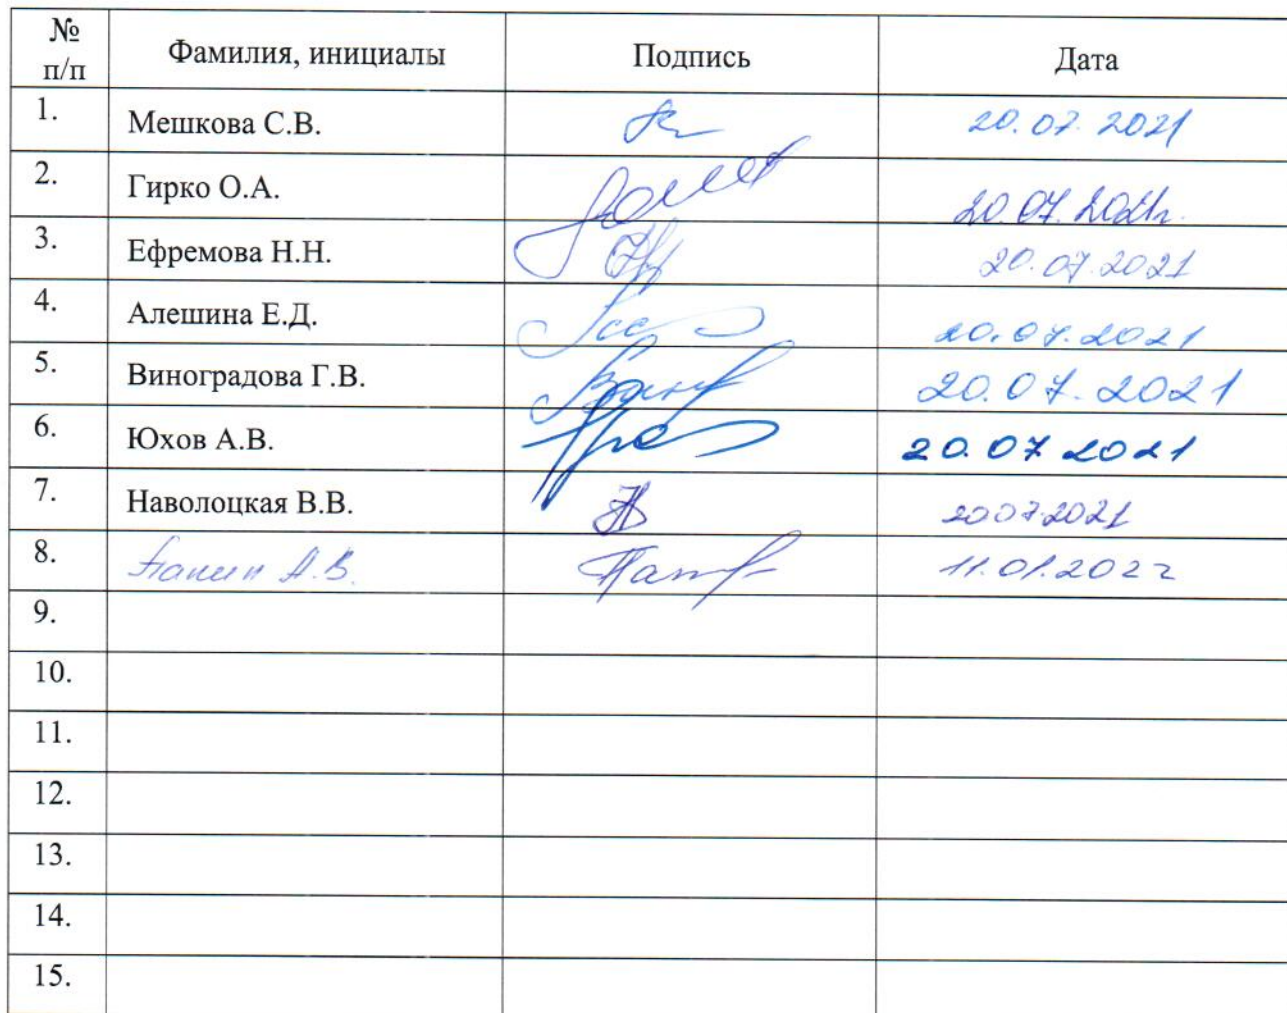 № п/п Фамилия, инициалы Подпись Дата
1. Мешкова С.В. 20.07.2021
2. Гирко О.А. 20.07.2021г.
3. Ефремова Н.Н. 20.07.2021
4. Алешина Е.Д. 20.07.2021
5. Виноградова Г.В. 20.07.2021
6. Юхов А.В. 20.07 2021
7. Наволоцкая В.В. 20072021
8. Панин А.В. 11.01.2022
9.
10.
11.
12.
13.
14.
15.